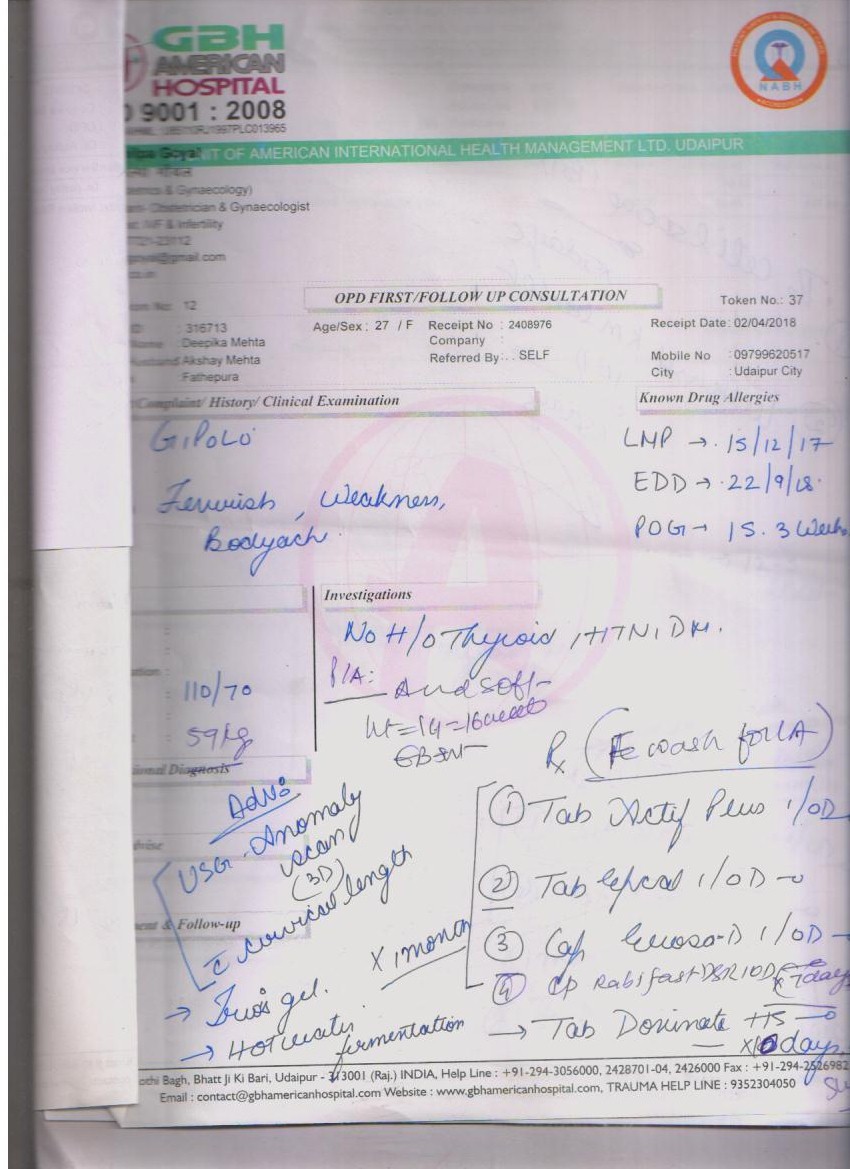 GBH
AMERICAN
HOSPITAL
9001 : 2008
NABH
Goyal NIT OF AMERICAN INTERNATIONAL HEALTH MANAGEMENT LTD. UDAIPUR
& Gynaecology)
Obstetrician & Gynaecologist
IVF & Infertility
@gmail.com
No: 12
OPD FIRST/FOLLOW UP CONSULTATION
Token No.: 37
: 316713
Age/Sex : 27 / F
Receipt No : 2408976
Receipt Date: 02/04/2018
: Deepika Mehta
Company :
Akshay Mehta
Referred By : . . SELF
Mobile No : 09799620517
: Fathepura
City : Udaipur City
Complaint/ History/ Clinical Examination
Known Drug Allergies
G1P0L0
LMP → 15/12/17
EDD → 22/9/18
, Weakness,
Bodyach
POG → 15.3 Weeks
Investigations
No H/o Thyroid, HTN, DM.
P/A:
110/70
soft
59kg
Rx
Diagnosis
Advs
① Tab Plus 1/OD
USG - Anomaly
scan
(3D)
c̄ cervical length
② Tab 1/OD
& Follow-up
X 1 month
③ Cap 1/OD
④ Cp Rabifast DSR 1OD x 7days
→ gel.
→ Hot water
fermentation
→ Tab HS
x 10 days
Bagh, Bhatt Ji Ki Bari, Udaipur - 313001 (Raj.) INDIA, Help Line : +91-294-3056000, 2428701-04, 2426000 Fax : +91-294-2526982
Email : contact@gbhamericanhospital.com Website : www.gbhamericanhospital.com, TRAUMA HELP LINE : 9352304050